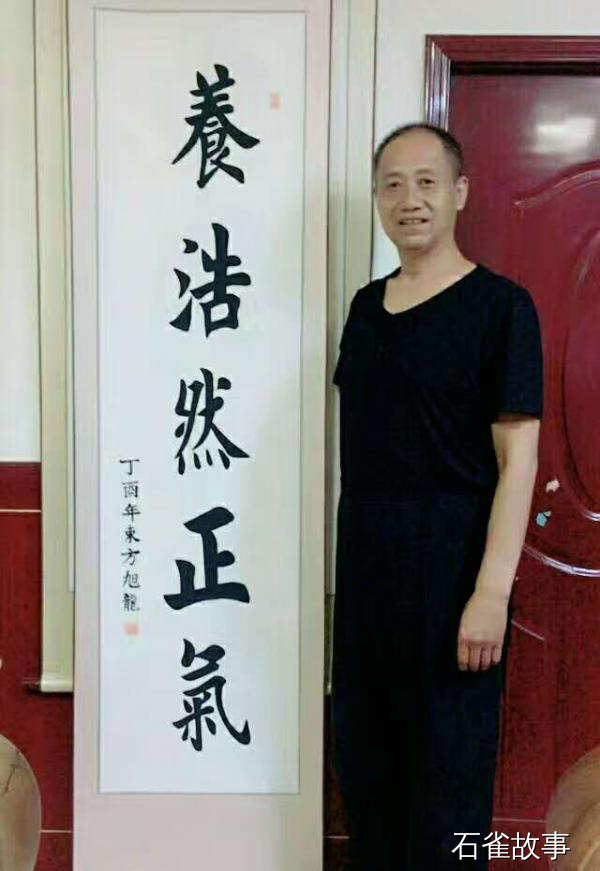 養浩然正氣
丁酉年東方旭龍
石雀故事